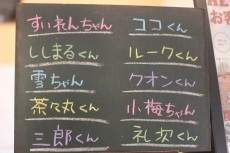 すいれんちゃん
ししまるくん
雪ちゃん
茶々丸くん
三郎くん
ココくん
ルークくん
クオンくん
小梅ちゃん
礼次くん